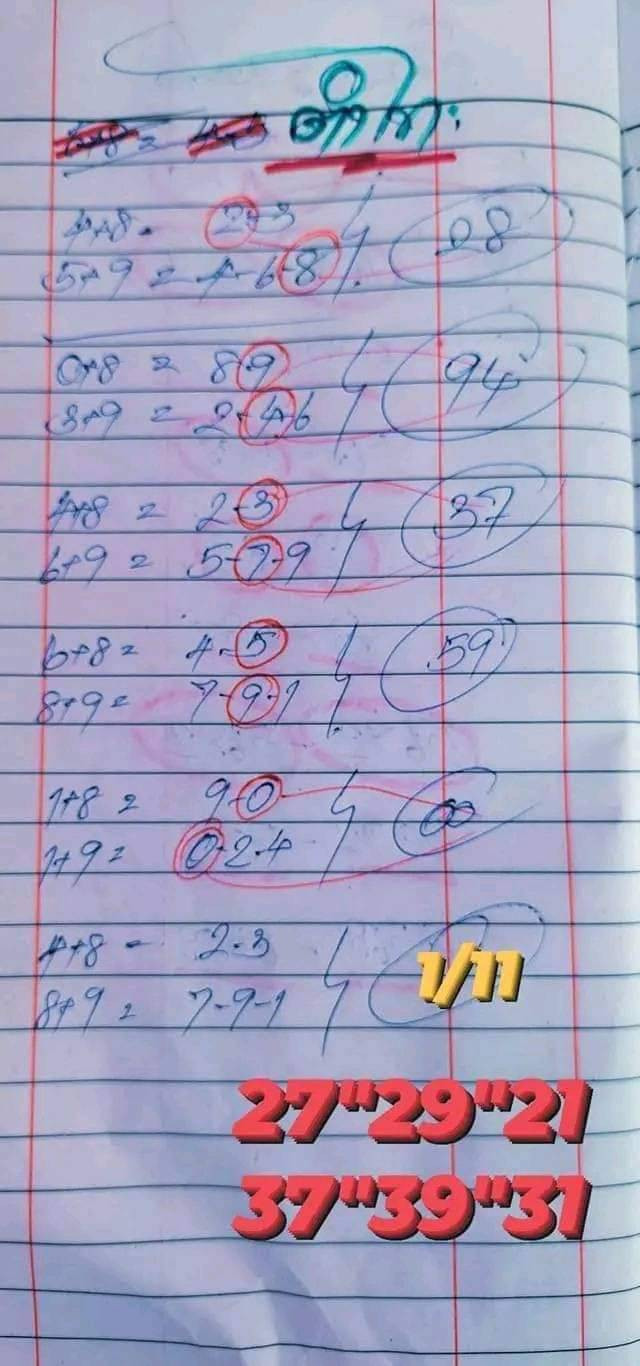 4+8 = 2-3
28
5+9 = 4-6-8
0+8 = 8-9
94
3+9 = 2-4-6
4+8 = 2-3
37
6+9 = 5-7-9
6+8 = 4-5
59
8+9 = 7-9-1
1+8 = 9-0
00
1+9 = 0-2-4
4+8 = 2-3
1/11
8+9 = 7-9-1
27"29"21
37"39"31